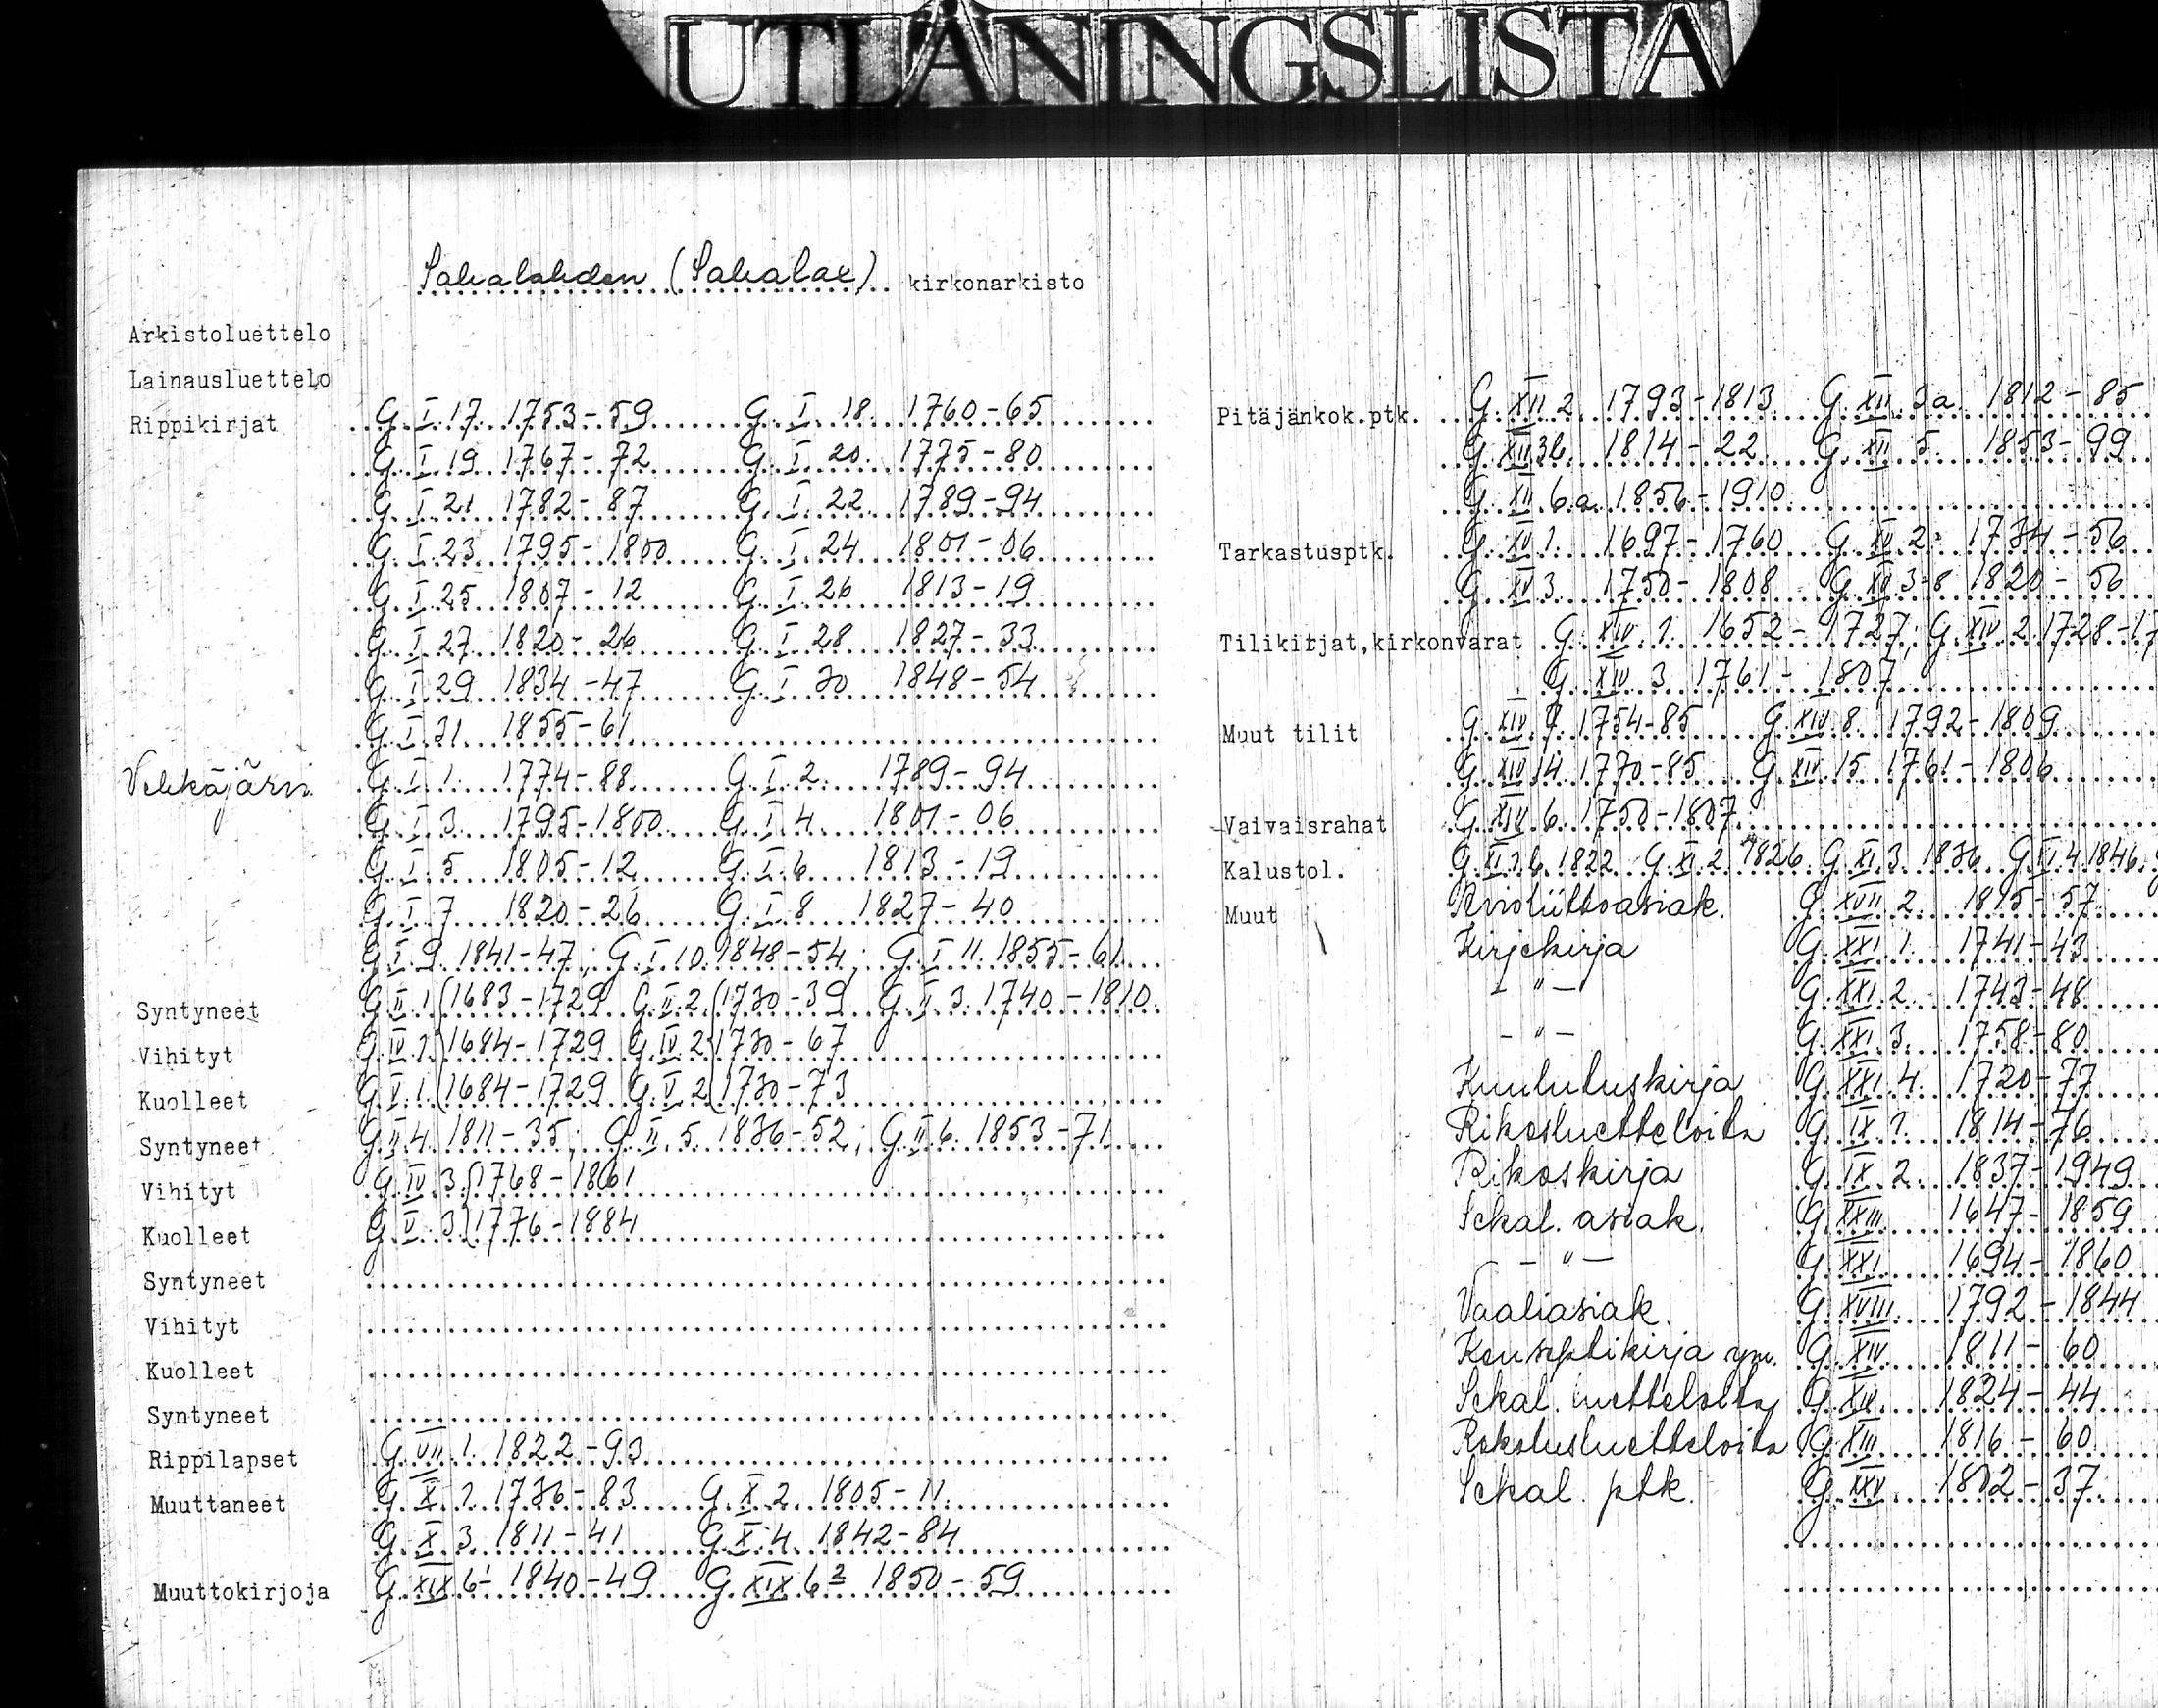 UTLÅNINGSLISTA
Sahalahden (Sahalax) kirkonarkisto
Arkistoluettelo
Lainausluettelo
Rippikirjat G.I.17. 1753-59 G.I.18. 1760-65
G.I.19 1767-72 G.I.20. 1775-80
G.I.21 1782-87 G.I.22. 1789-94
G.I.23 1795-1800 G.I.24 1801-06
G.I.25 1807-12 G.I.26 1813-19
G.I.27 1820-26 G.I.28 1827-33
G.I.29 1834-47 G.I.30 1848-54
G.I.31 1855-61
Vehkajärvi G.I.1. 1774-88 G.I.2. 1789-94
G.I.3. 1795-1800 G.I.4. 1801-06
G.I.5 1805-12 G.I.6 1813-19
G.I.7 1820-26 G.I.8 1827-40
G.I.9. 1841-47; G.I.10. 1848-54; G.I.11. 1855-61
Syntyneet G.II.1. 1683-1729 G.II.2. 1730-39 G.II.3. 1740-1810.
Vihityt G.IV.1. 1684-1729 G.IV.2. 1730-67
Kuolleet G.V.1. 1684-1729 G.V.2. 1730-73
Syntyneet G.II.4. 1811-35; G.II.5. 1836-52; G.II.6. 1853-71
Vihityt G.IV.3. 1768-1861
Kuolleet G.V.3. 1776-1884
Syntyneet
Vihityt
Kuolleet
Syntyneet
Rippilapset G.VII.1. 1822-93
Muuttaneet G.X.1. 1786-83 G.X.2. 1805-11.
G.X.3. 1811-41 G.X.4. 1842-84
Muuttokirjoja G.XIX.6¹ 1840-49 G.XIX.6² 1850-59
Pitäjänkok.ptk. G.XII.2. 1793-1813 G.XII.3a. 1812-85
G.XII.3b. 1814-22 G.XII.5. 1853-99
G.XII.6.a. 1856-1910
Tarkastusptk. G.XV.1. 1697-1760 G.XV.2. 1734-56
G.XV.3. 1750-1808 G.XV.3-8 1820-56
Tilikirjat,kirkonvarat G.XIV.1. 1652-1727; G.XIV.2. 1728-17
G.XIV.3 1761-1807
Muut tilit G.XIV.7. 1754-85 G.XIV.8. 1792-1809
G.XIV.14. 1770-85 G.XIV.15 1761-1806
Vaivaisrahat G.XIV.6. 1750-1807
Kalustol. 1822 G.XI.2. 1826. G.XI.3. 1836 1846.
Muut Avioliittoasiak. G.XVII.2. 1815-57
Kirjekirja G.XXI.1. 1741-43
- " - G.XXI.2. 1743-48
- " - G.XXI.3. 1758-80
Kuulutuskirja G.XXI.4. 1720-77
Rikosluetteloita G.IX.1. 1814-76
Rikoskirja G.IX.2. 1837-1949
Sekal. asiak. G.XXIII 1647-1859
- " - G.XXI 1694-1860
Vaaliasiak. G.XVIII. 1792-1844
Konseptikirja ym. G.XIV 1811-60
Sekal. luetteloita 1824-44
Rokotusluetteloita G.XIII 1816-60
Sekal. ptk. G.XXV. 1802-37